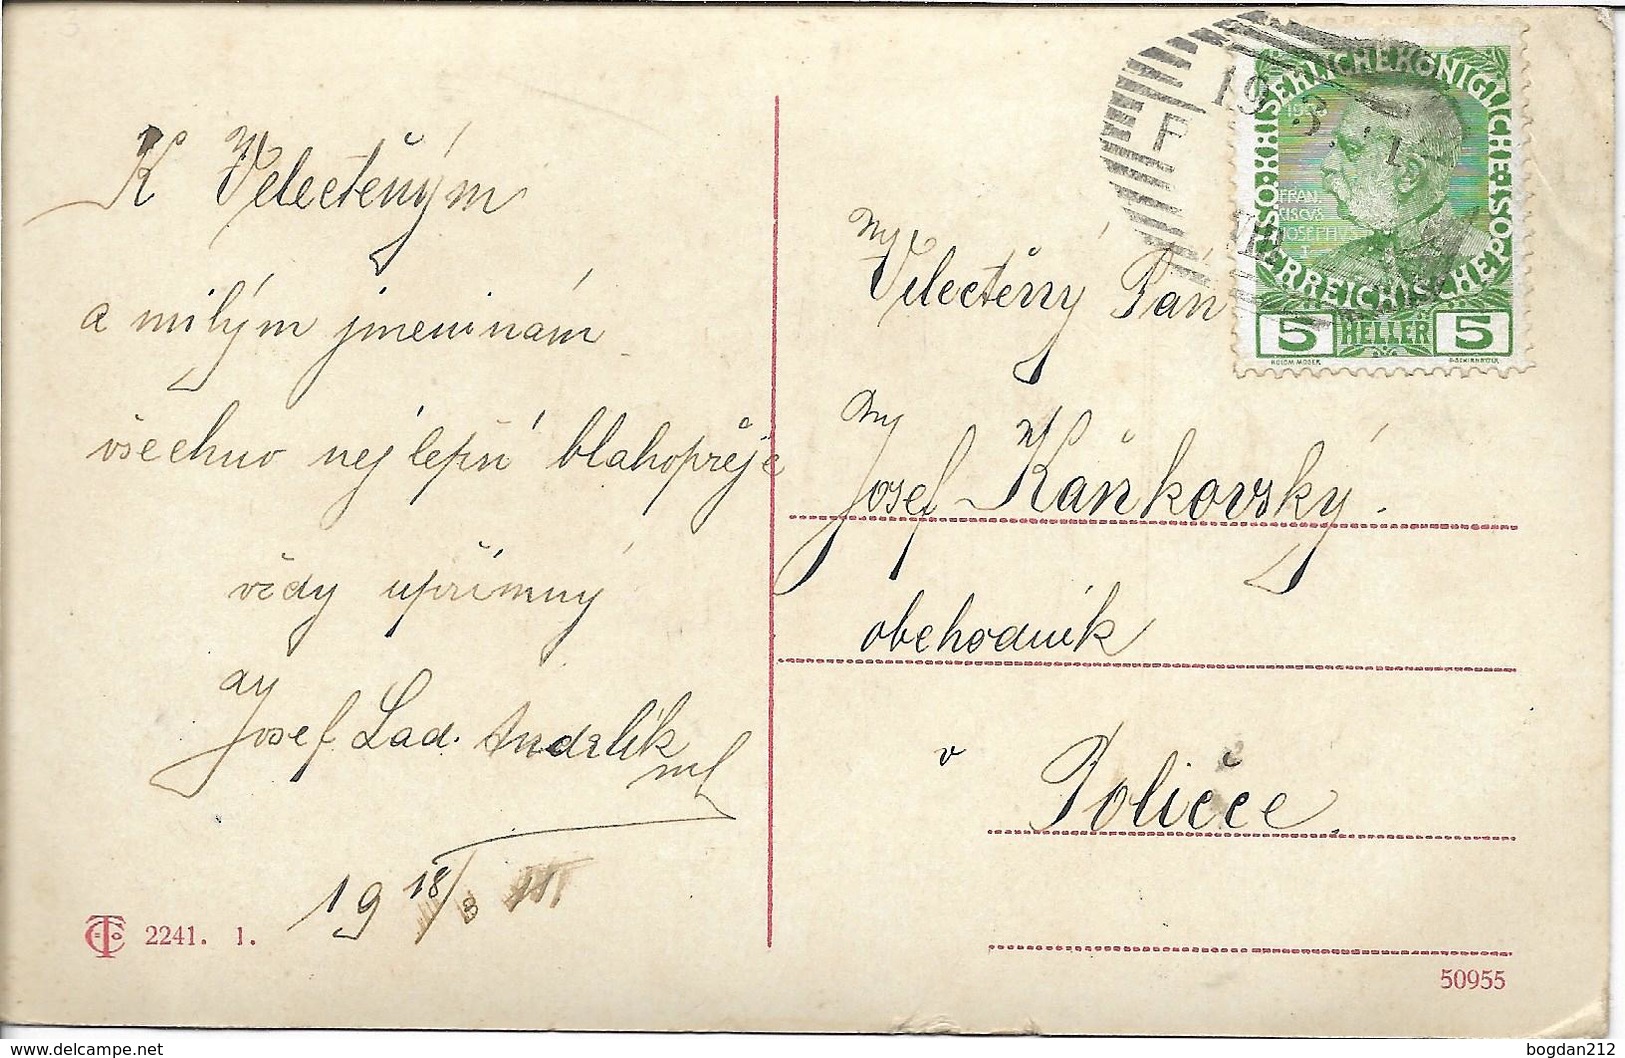 K Velectěným
a milým jmeninám
všechno nejlepší blahopřeje
vždy upřímný
Josef Lad. Andrlík
19 18/3 11
2241. 1.
19 3 11
KAISERLICHE KÖNIGLICHE ÖSTERREICHISCHE POST
1908
FRAN
CISCVS
JOSEPHVS
I
5 HELLER 5
KOLOM. MOSER
F. SCHIRNBÖCK
Velectěný Pán
Josef Kaňkovský.
obchodník
v
Poličce.
50955
delcampe.net
bogdan212